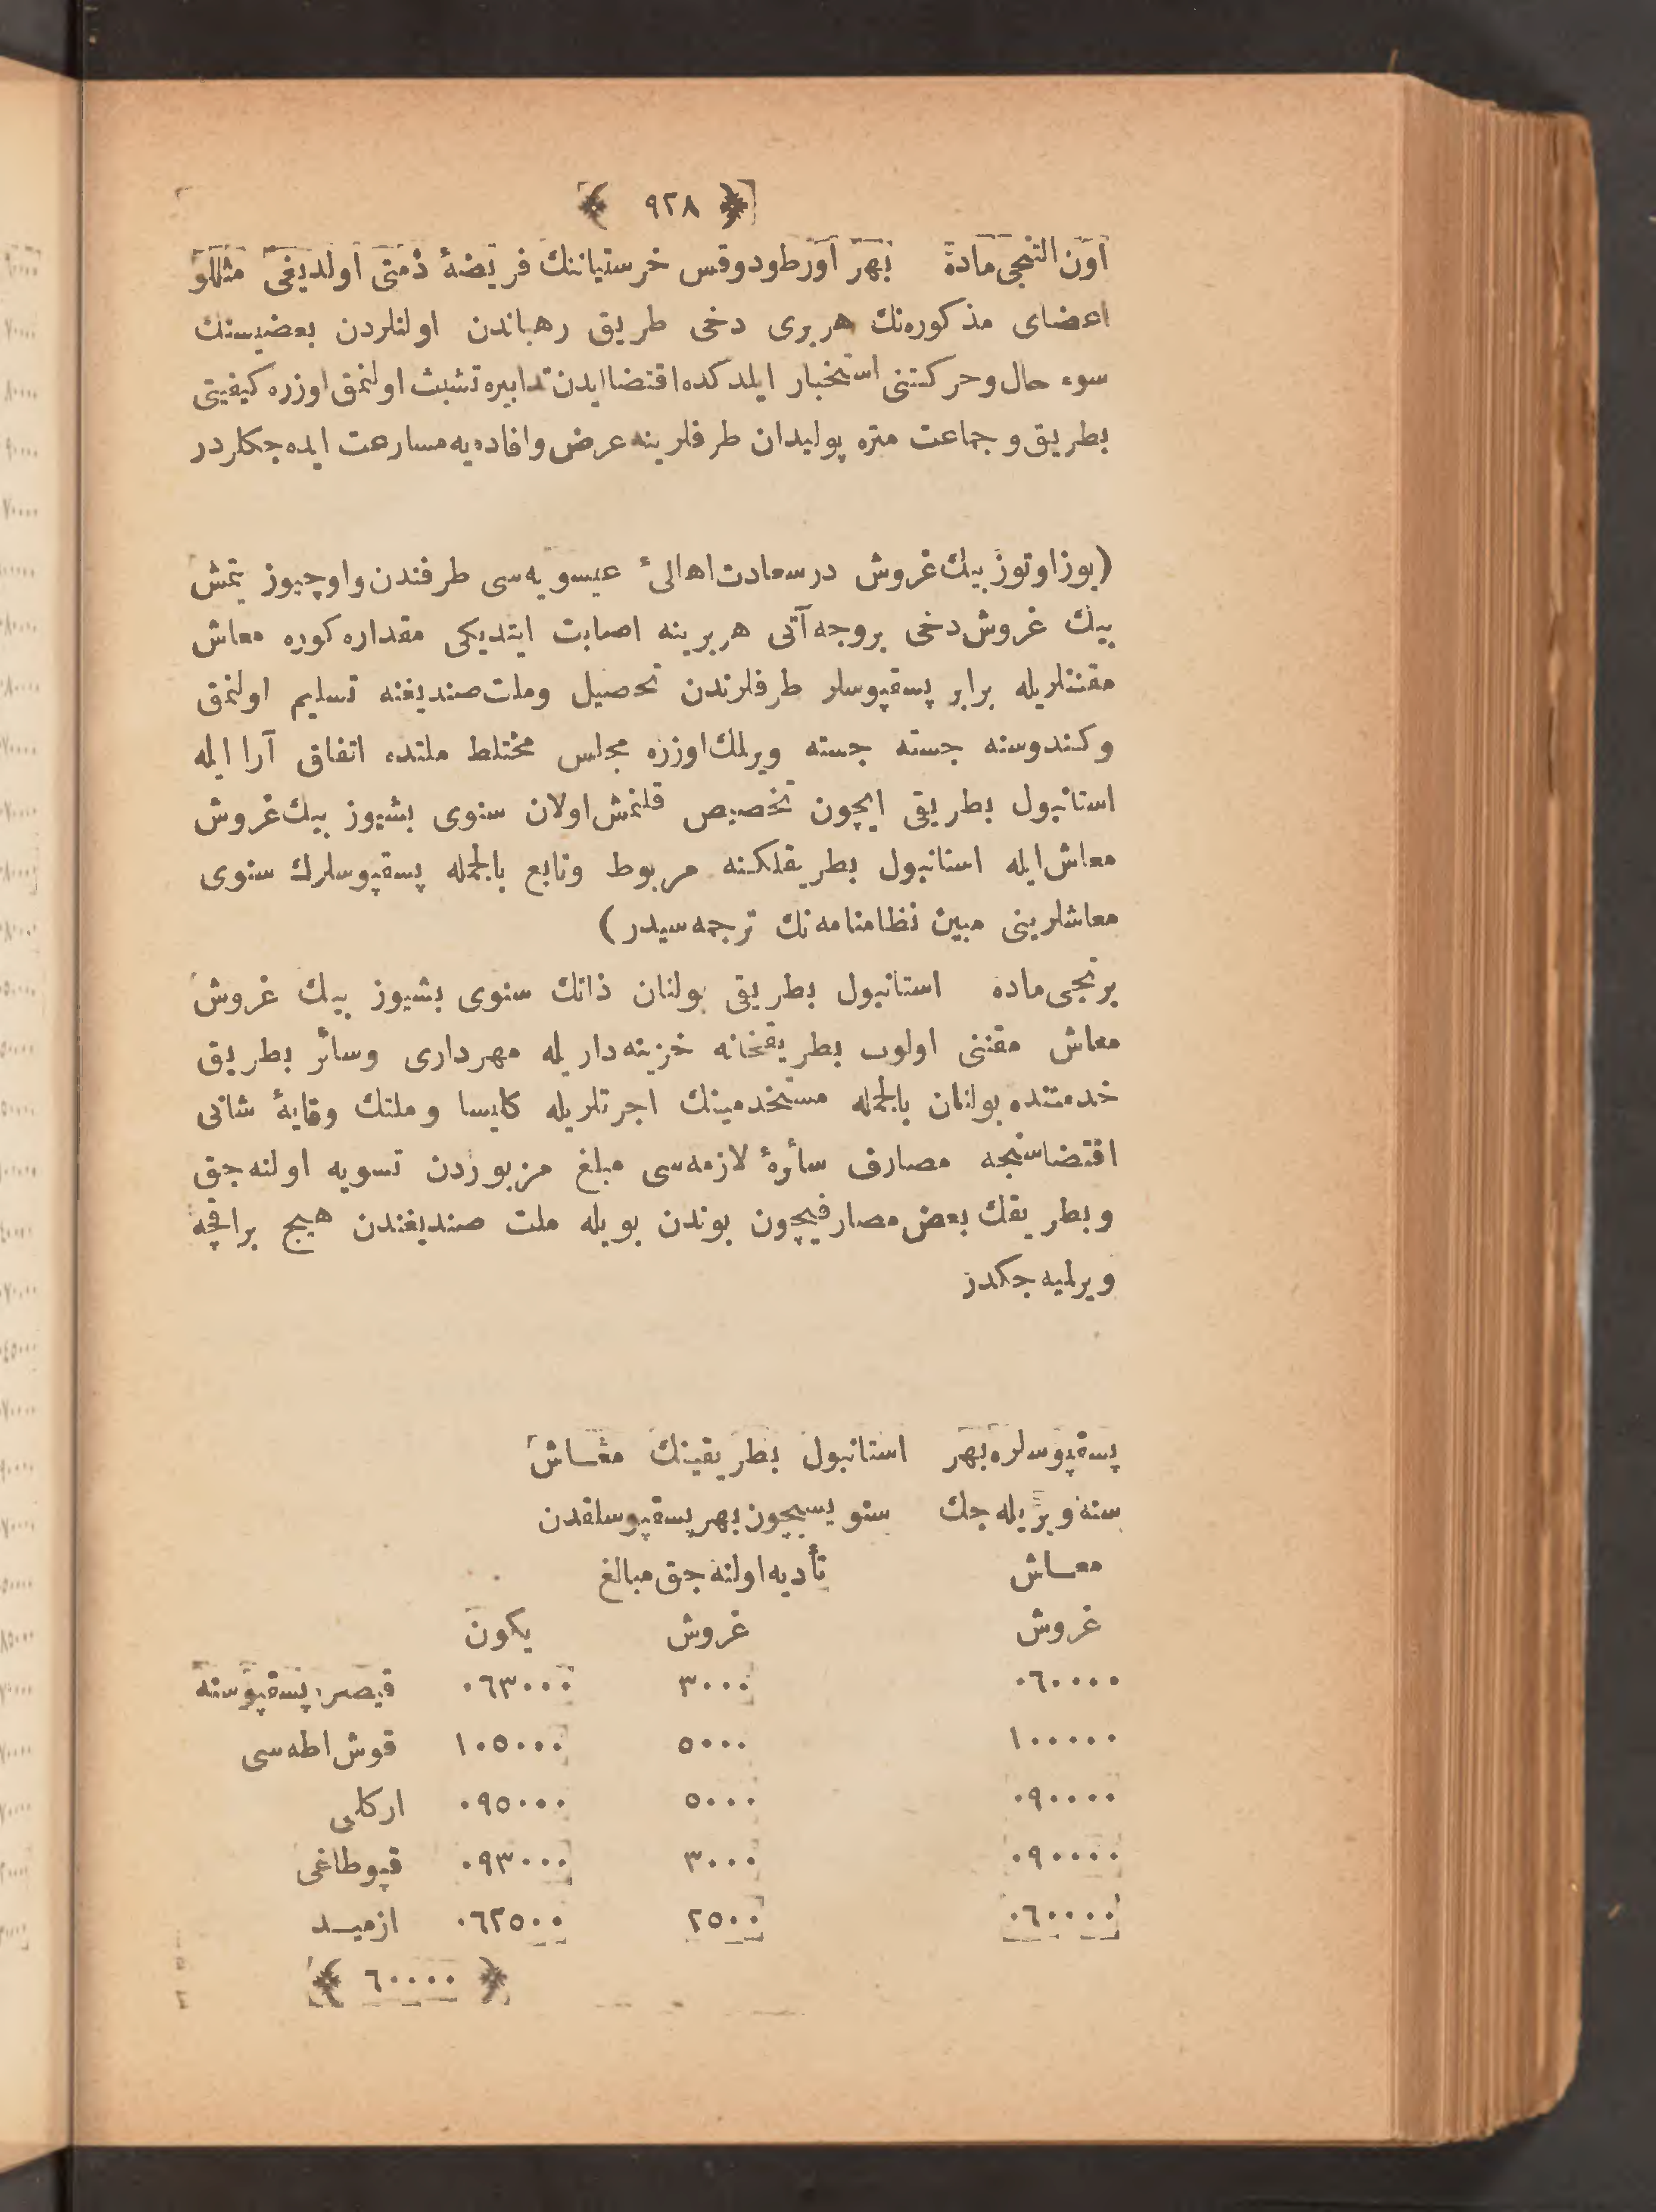 ﴿ ٩٢٨ ﴾
اون التنجی ماده بهر اورطودوقس خرستیاننك فریضۀ ذمتی اولدیغی مثللو
اعضای مذکوره‌نك هر بری دخی طریق رهباندن اولنلردن بعضیسنك
سوء حال وحرکتنی استخبار ایلدکده اقتضا ایدن تدابیره تشبث اولنمق اوزره کیفیتی
بطریق و جماعت متره پولیدان طرفلرینه عرض وافاده‌یه مسارعت ایده جکلردر
(یوز اوتوز بیك غروش درسعادت اهالیٔ عیسویه‌سی طرفندن واوچیوز یتمش
بیك غروش دخی بروجه آتی هر برینه اصابت ایتدیکی مقداره کوره معاش
مقننلریله برابر پسقپوسلر طرفلرندن تحصیل وملت صندیغنه تسلیم اولنمق
وکندوسنه جسته جسته ویرلمك اوزره مجلس مختلط ملتده اتفاق آرا ایله
استانبول بطریقی ایچون تخصیص قلنمش اولان سنوی بشیوز بیك غروش
معاش ایله استانبول بطریقلکنه مربوط وتابع بالجمله پسقپوسلرك سنوی
معاشلرینی مبین نظامنامه‌نك ترجمه سیدر)
برنجی ماده استانبول بطریقی بولنان ذاتك سنوی بشیوز بیك غروش
معاش مقننی اولوب بطریقخانه خزینه‌داریله مهرداری وسائر بطریق
خدمتنده بولنان بالجمله مستخدمینك اجرتلریله کلیسا وملتك وقایۀ شانی
اقتضاسنجه مصارف سائرۀ لازمه‌سی مبلغ مزبوردن تسویه اولنه جق
وبطریقك بعض مصارفیچون بوندن بویله ملت صندیغندن هیچ براقچه
ویرلمیه جکدر
پسقپوسلره بهر استانبول بطریقینك معاش
سنه ویریله جك سنویسیچون بهر پسقپوسلقدن
معاش تأدیه اولنه جق مبالغ
غروش غروش یکون
٠٦٠٠٠٠ ٣٠٠٠ ٠٦٣٠٠٠ قیصریه پسقپوسنه
١٠٠٠٠٠ ٥٠٠٠ ١٠٥٠٠٠ قوش اطه‌سی
٠٩٠٠٠٠ ٥٠٠٠ ٠٩٥٠٠٠ ارکلی
٠٩٠٠٠٠ ٣٠٠٠ ٠٩٣٠٠٠ قپوطاغی
٠٦٠٠٠٠ ٢٥٠٠ ٠٦٢٥٠٠ ازمیـد
﴿ ٦٠٠٠٠ ﴾